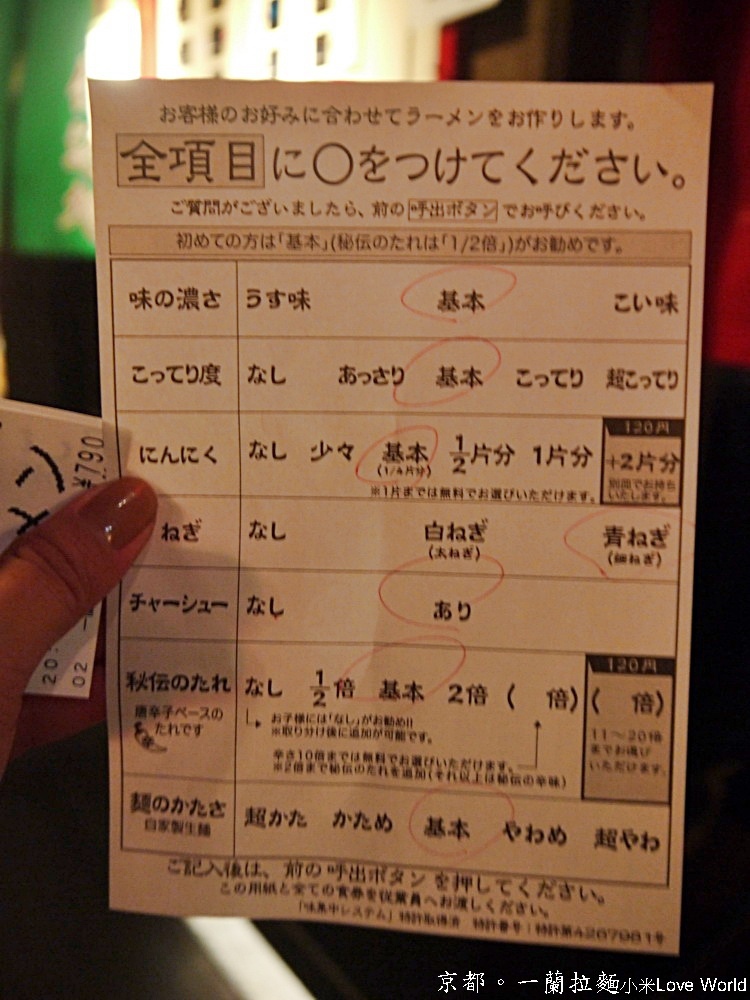 お客様のお好みに合わせてラーメンをお作りします。
全項目に〇をつけてください。
ご質問がございましたら、前の呼出ボタンでお呼びください。
初めての方は「基本」(秘伝のたれは「1/2倍」)がお勧めです。
味の濃さ うす味 基本 こい味
こってり度 なし あっさり 基本 こってり 超こってり
120円
にんにく なし 少々 基本 1/2片分 1片分 +2片分
(1/4片分) 別皿でお持ち
いたします。
※1片までは無料でお選びいただけます。
ねぎ なし 白ねぎ 青ねぎ
(太ねぎ) (細ねぎ)
チャーシュー なし あり
120円
秘伝のたれ なし 1/2倍 基本 2倍 ( 倍) ( 倍)
唐辛子ベースの
たれです
お子様には「なし」がお勧め!!
※取り分け後に追加が可能です。
11～20倍
までお選び
いただけます。
辛さ10倍までは無料でお選びいただけます。
※2倍まで秘伝のたれを追加(それ以上は秘伝の辛味)
麺のかたさ 超かた かため 基本 やわめ 超やわ
自家製生麺
ご記入後は、前の呼出ボタンを押してください。
この用紙と全ての食券を従業員へお渡しください。
「味集中システム」特許取得済 特許番号:特許第4267981号
メン
¥790
20
02
京都。一蘭拉麵小米Love World